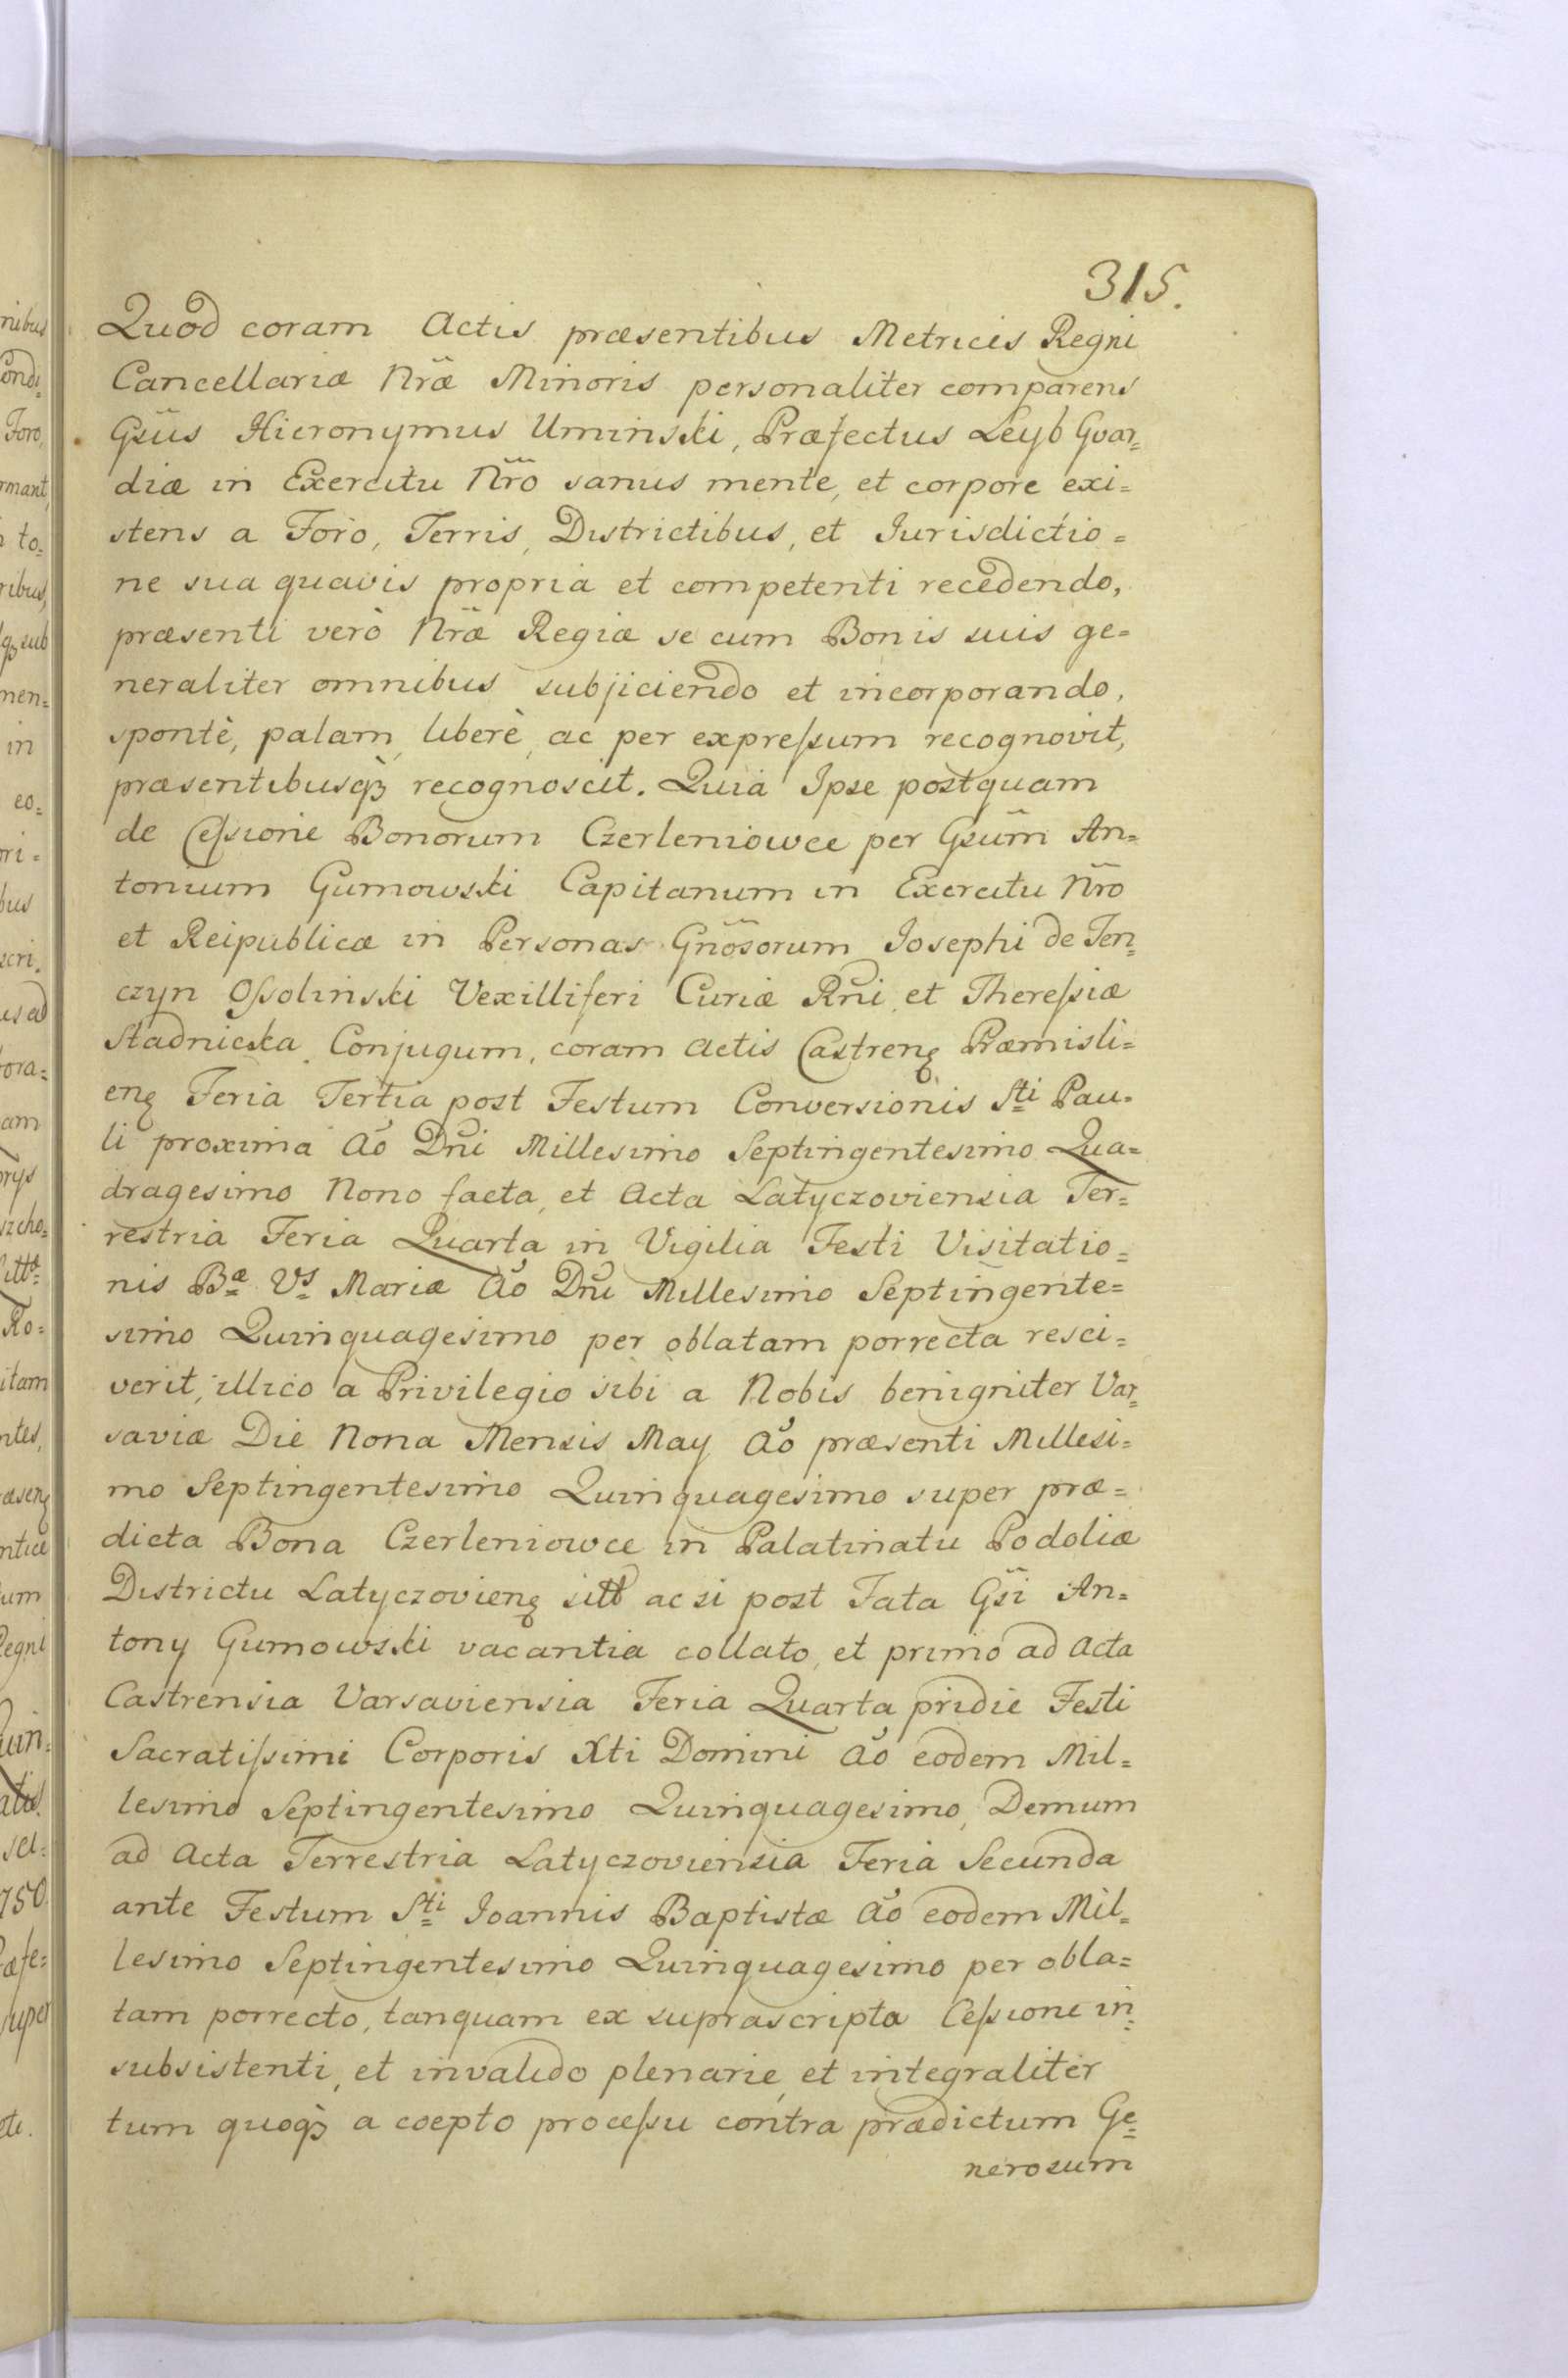 315.
Quod coram Actis præsentibus Metrices Regni
Cancellariæ Nr̃æ Minoris personaliter comparens
Gsũs Hieronymus Uminski, Præfectus Leyb Gvar=
diæ in Exercitu Nr̃o sanus mente, et corpore exi=
stens a Foro, Terris, Districtibus, et Jurisdictio=
ne sua quavis propria et competenti recedendo,
præsenti verò Nr̃æ Regiæ se cum Bonis suis ge=
neraliter omnibus subjiciendo et incorporando,
spontè, palam, liberè, ac per expreſsum recognovit,
præsentibusqꝫ recognoscit. Quia Ipse postquam
de Ceſsione Bonorum Czerleniowce per Gsũm An=
tonium Gumowski Capitanum in Exercitu Nr̃o
et Reipublicæ in Personas Gnõsorum Josephi de Ten=
czyn Oſsolinski Vexilliferi Curiæ Rñi et Thereſsiæ
Stadnicka Conjugum, coram actis Castrenꝫ Præmisli=
enꝫ Feria Tertia post Festum Conversionis Sti Pau=
li proxima Aõ Dñi Millesimo Septingentesimo Qua=
dragesimo Nono facta, et Acta Latyczoviensia Ter=
restria Feria Quarta in Vigilia Festi Visitatio=
nis Bæ Vs Mariæ Aõ Dñi Millesimo Septingente=
simo Quinquagesimo per oblatam porrecta resci=
verit, illico a Privilegio sibi a Nobis benigniter Var=
saviæ Die Nona Mensis May Aõ præsenti Millesi=
mo Septingentesimo Quinquagesimo super præ=
dicta Bona Czerleniowce in Palatinatu Podoliæ
Districtu Latyczovienꝫ sitt ac si post Fata Gsĩ An=
tony Gumowski vacantia collato, et primo ad Acta
Castrensia Varsaviensia Feria Quarta pridie Festi
Sacratiſsimi Corporis Xti Domini Aõ eodem Mil=
lesimo Septingentesimo Quinquagesimo, Demum
ad Acta Terrestria Latyczoviensia Feria Secunda
ante Festum Sti Joannis Baptistæ Aõ eodem Mil=
lesimo Septingentesimo Quinquagesimo per obla=
tam porrecto, tanquam ex suprascripta Ceſsione in=
subsistenti, et invalido plenarie, et integraliter
tum quoqꝫ a coepto proceſsu contra prædictum Ge=
nerosum